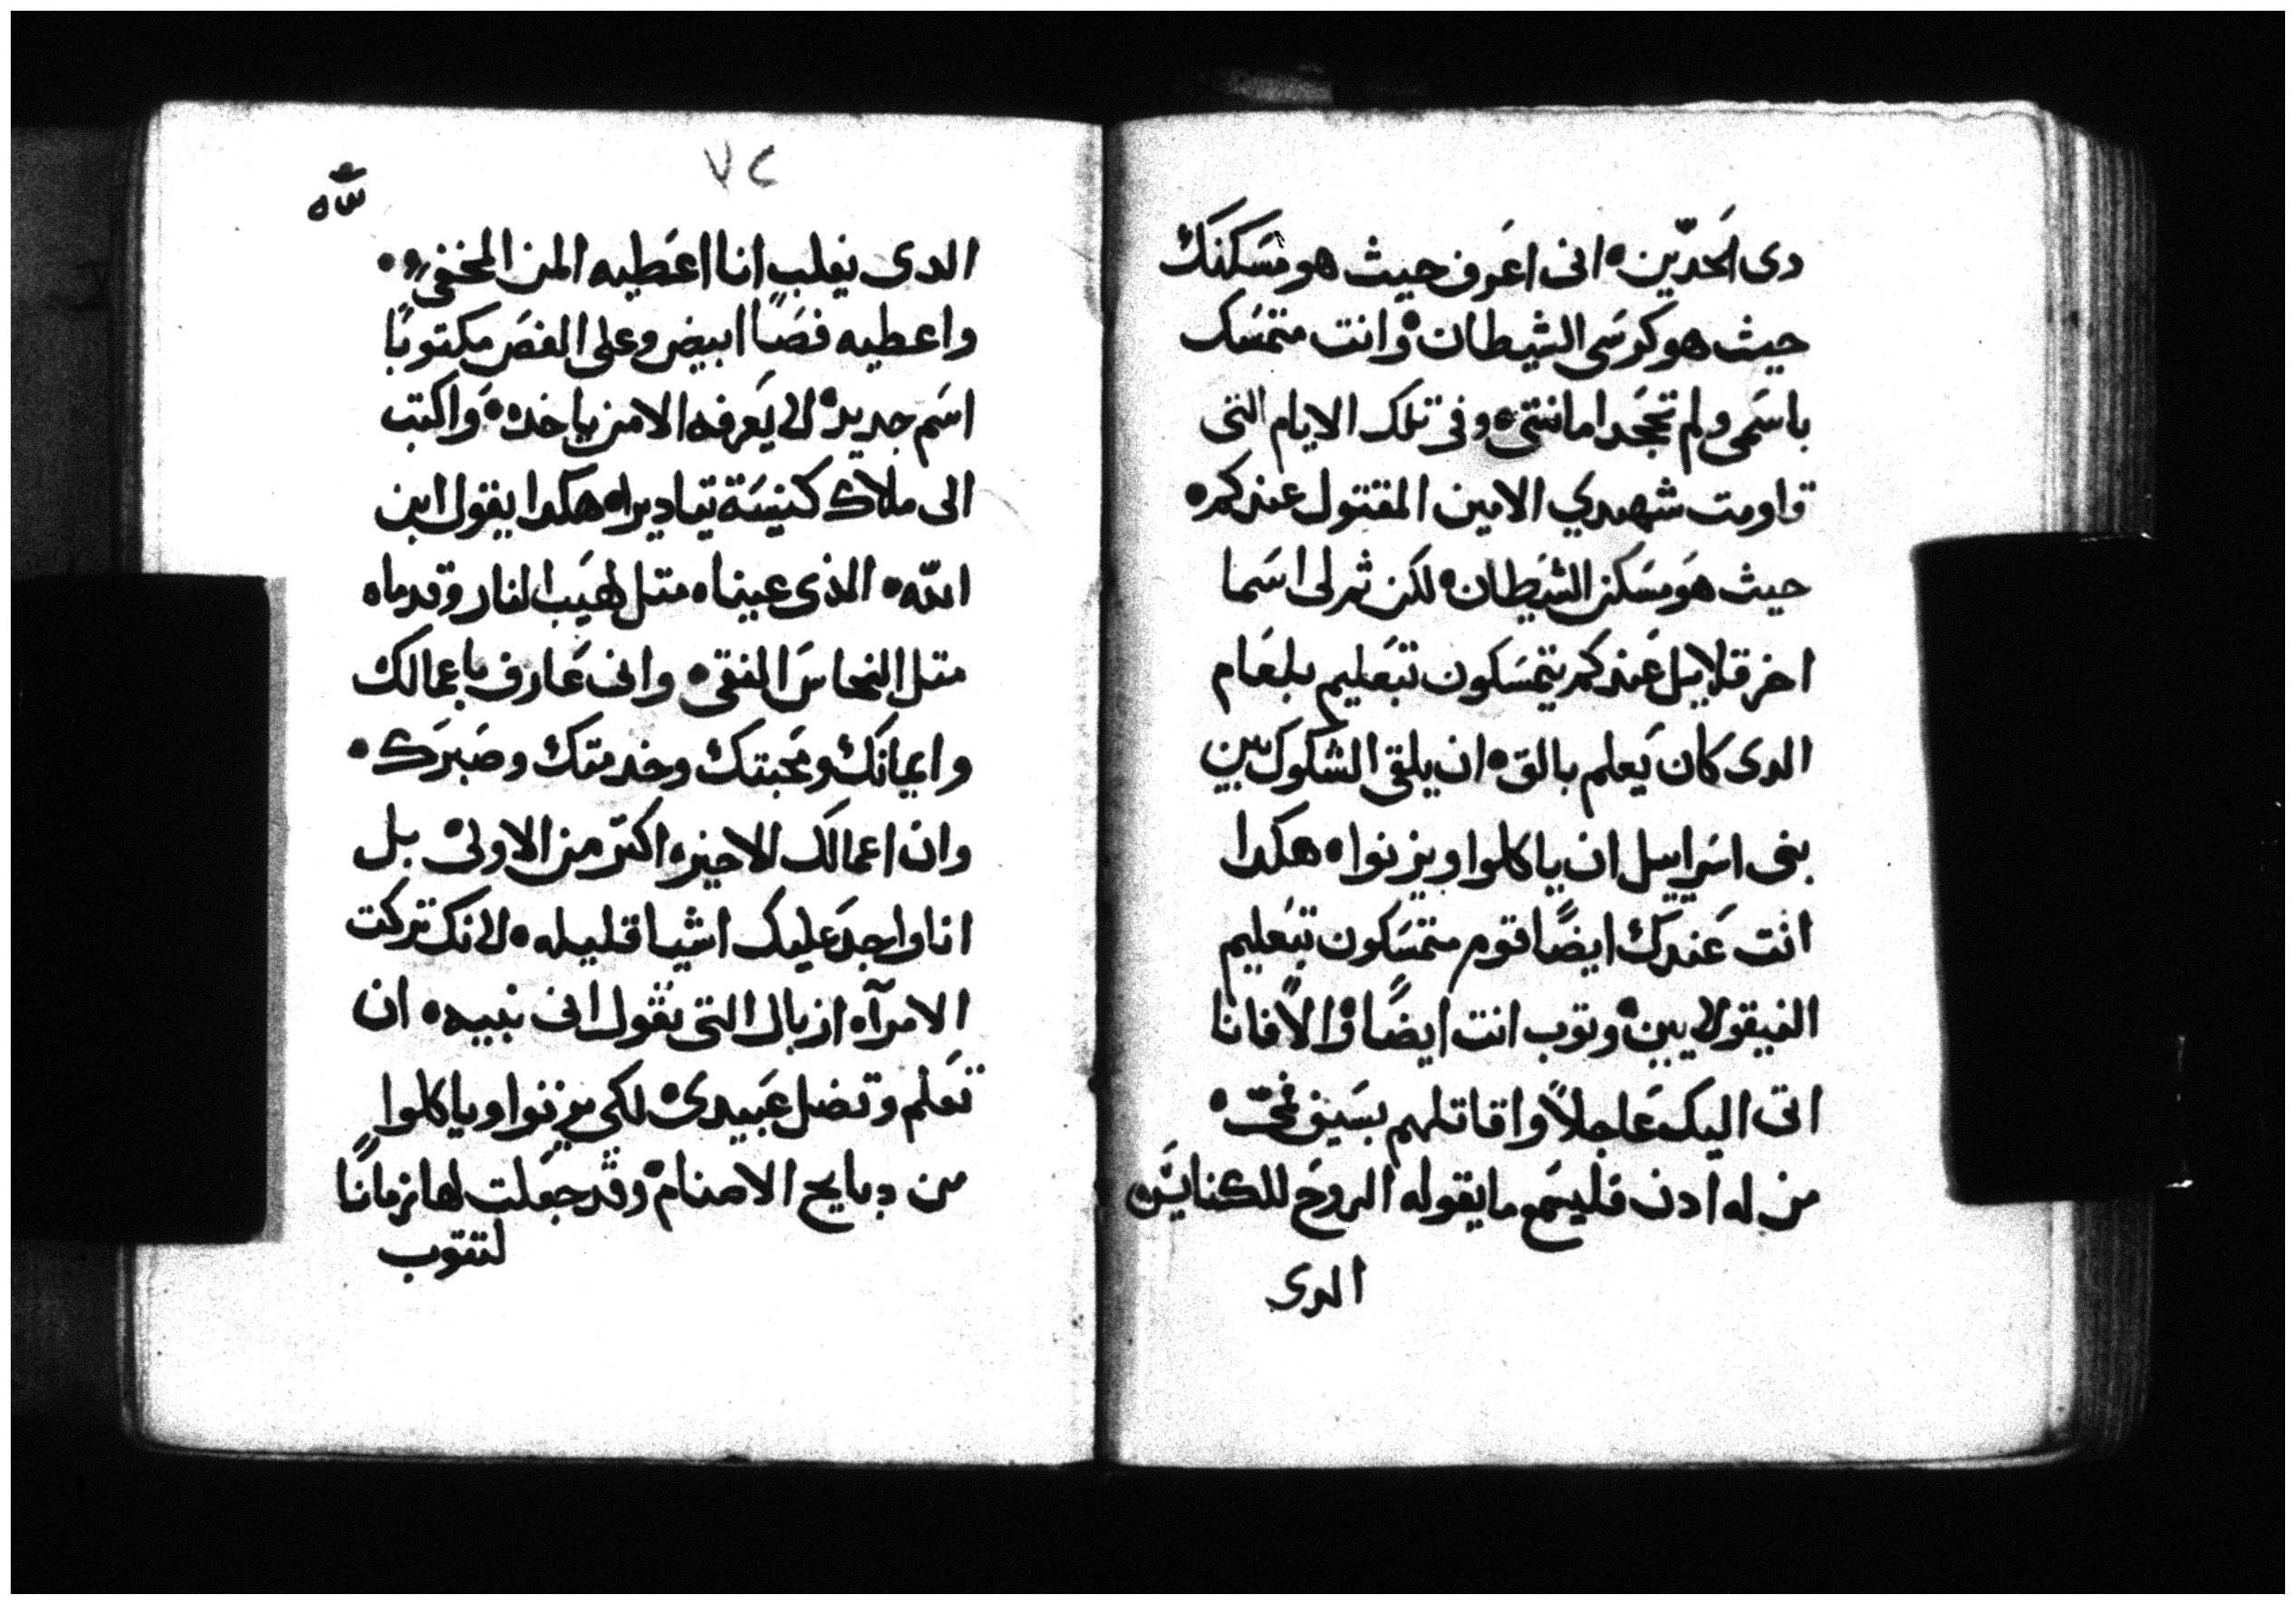 دى الحدّين ه انى اعرف حيث هو مسَكنك
حيث هو كرسَى الشيطان ه وانت متمسَك
باسَمى ولم تجحَد امانتى ه وفى تلك الايام التى
قاومت شهيدي الامين المقتول عندكم ه
حيث هوَ مسَكن الشيَطان ه لكن ثم لى اسَما
اخر قلايل عَندكم يتمسَكون تبَعليم بلعَام
الدى كان يَعلم بالق ه ان يلقى الشكوك بين
بنى اسَراييل ان ياكلوا ويزنوا ه هكدا
انت عَندك ايضًا قوم متمسَكون تبعَليم
النيقولايين ه وتوب انت ايضًا ه والًا فانا
اتى اليك عَاجلاً واقاتلهم بسَيف فمى ه
من له ادن فليسَمع ما يقوله الروحَ للكنايسَ ه
الدى
٧٢
الدى يغلب انا اعَطيه المن المخفى ه
واعطيه فصًا ابيض وعلى الفصَ مكتوبًا
اسَم جديد ه لا يَعرفه الا من ياخده ه وَاكتب
الى ملاك كنيسَة تياديرا ه هكدا يقول ابن
اللّه ه الذى عيناه متل لهيَب النار وقدماه
متل النحاسَ النقى ه وانى عَارف باعمالك
وايمانك ومحَبتك وخدمتك وصَبرَك ه
وان اعمالك الاخيره اكتر من الاولى ه بل
انا واجدَ عليك اشيا قليله ه لانك تركت
الامرآه ازبال التى تقول انى نبيه ه ان
تعَلم وتضل عَبيدى ه لكى يزنوا وياكلوا
من دبايح الاصنام ه وقد جعَلت لها زمانًا
لتتوب